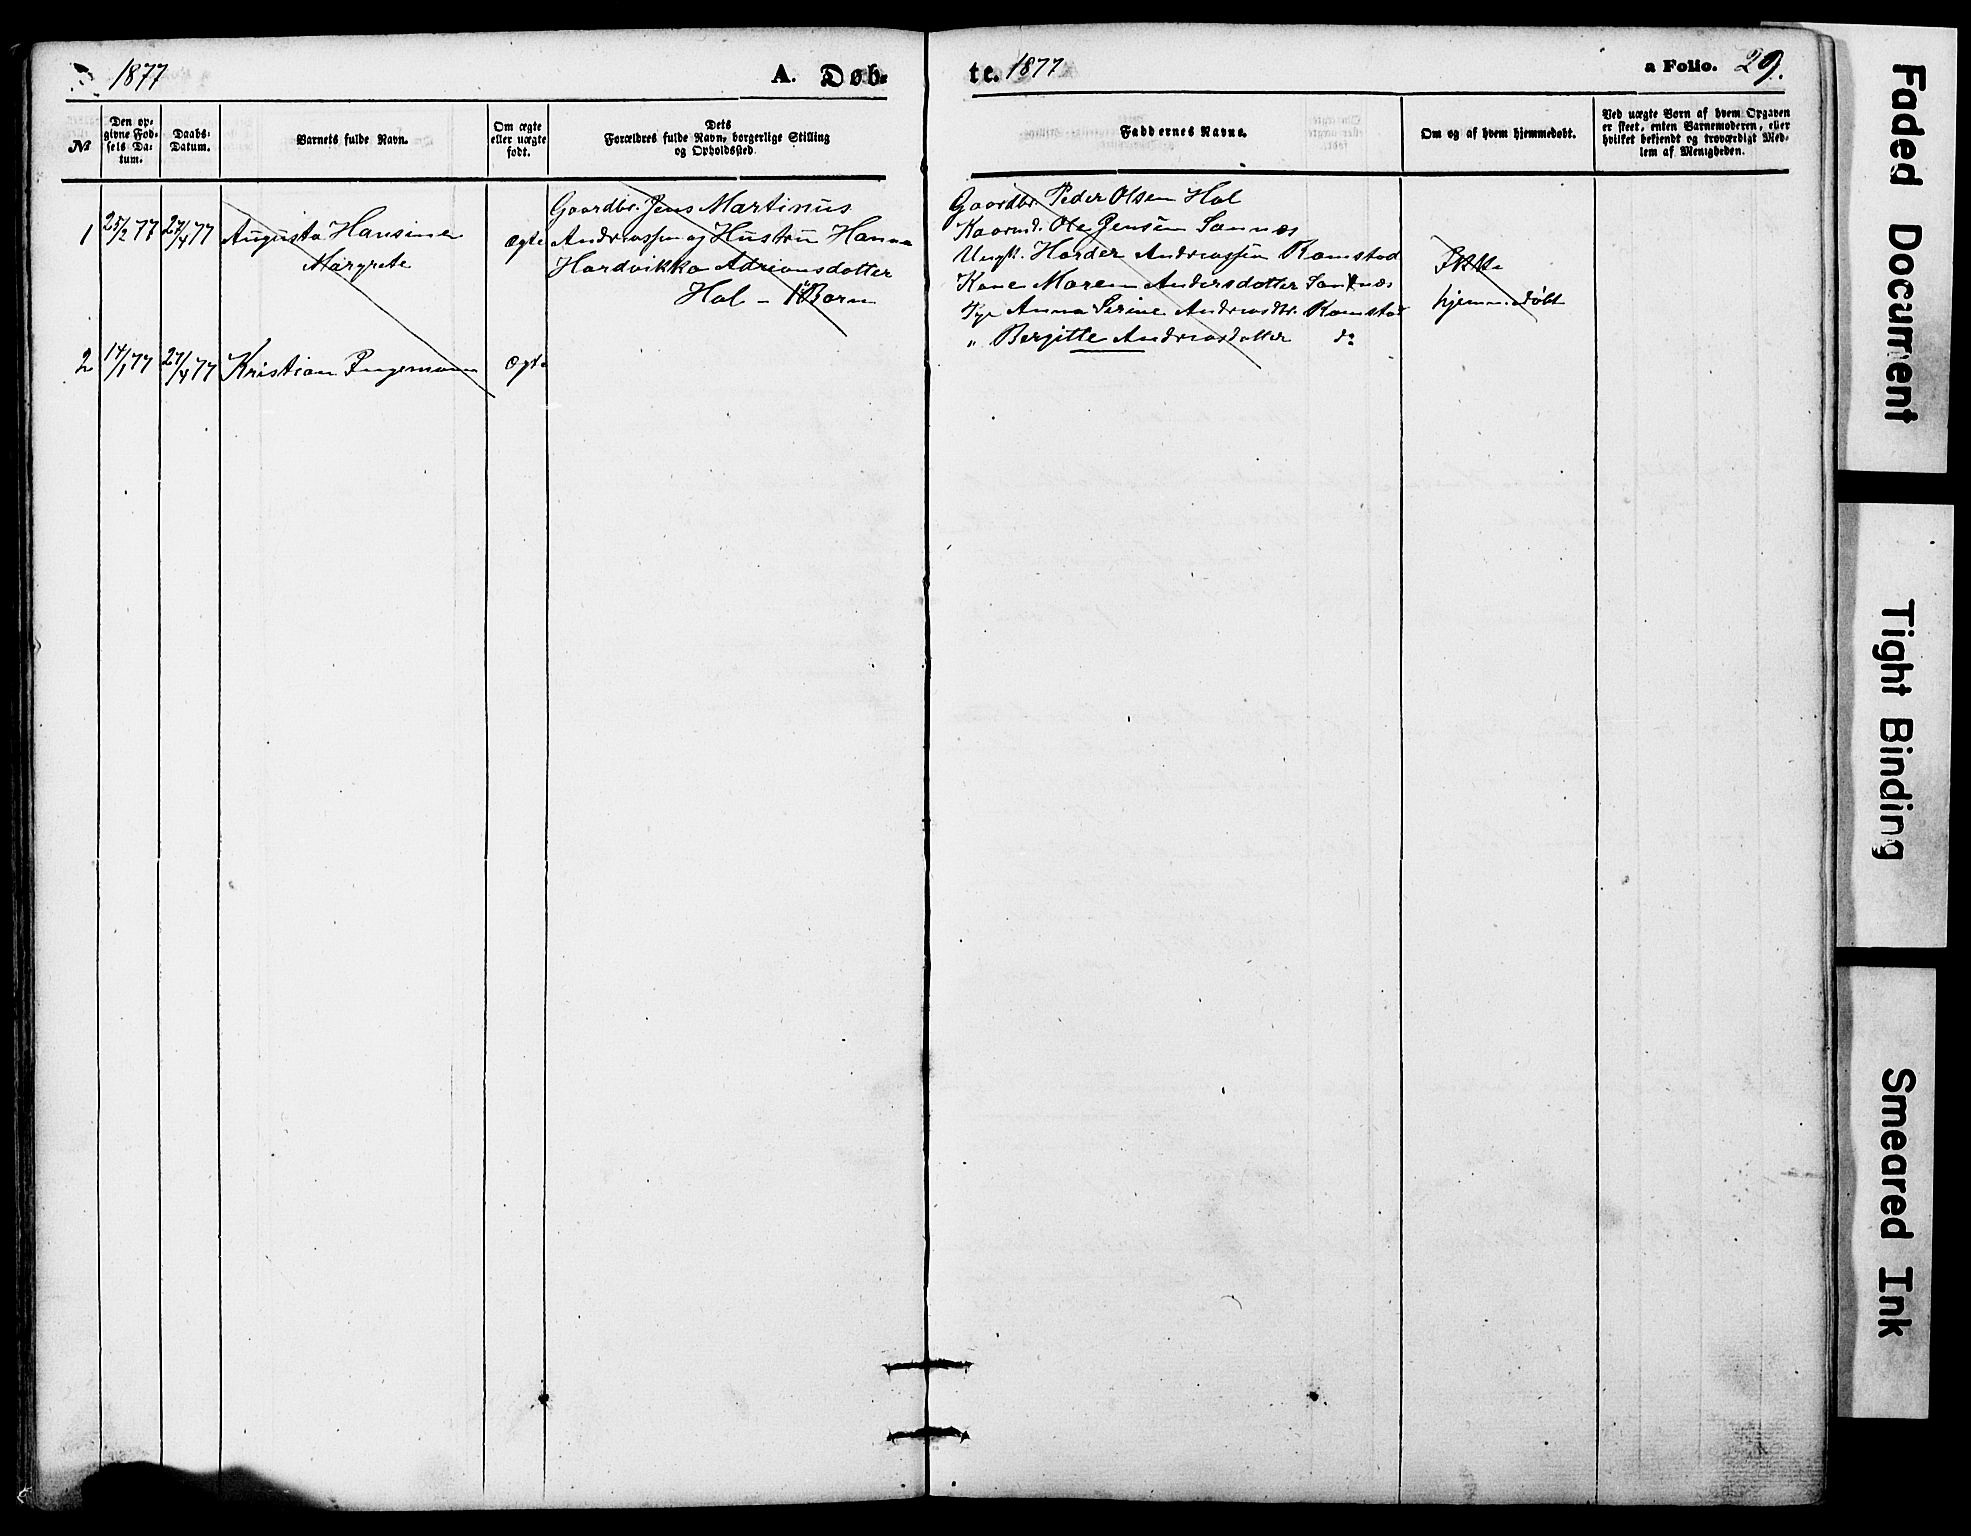 1877 A. Døb-
te. 1877 a Folio. 29.
№
Den op-
givne Fød-
sels Da-
tum.
Daabs-
Datum.
Barnets fulde Navn.
Om ægte
eller uægte
født.
Dets
Forældres fulde Navn, borgerlige Stilling
og Opholdssted.
Faddernes Navne.
Om og af hvem hjemmedøbt.
Ved uægte Børn af hvem Opgaven
er skeet, enten Barnemoderen, eller
hvilket bekjendt og troværdigt Med-
lem af Menigheden.
1 25/2 77 27/4 77 Augusta Hansine
Margrete
ægte
Gaardbr. Jens Martinus
Andreassen og Hustru Hanna
Hardvikka Adriansdatter
Hal - 1 Barn
Gaardbr. Peder Olsen Hal
Kaarmd. Ole Jensen Sannæs
Ungk. Harder Andreassen Ramstad
Kone Maren Andersdatter Sannæs
Pige Anna Serine Andreasdtr. Ramstad
" Bergitte Andreasdatter do
Ikke
hjemmedøbt
2 14/1 77 27/4 77 Kristian Ingemann ægte
Faded Document
Tight Binding
Smeared Ink